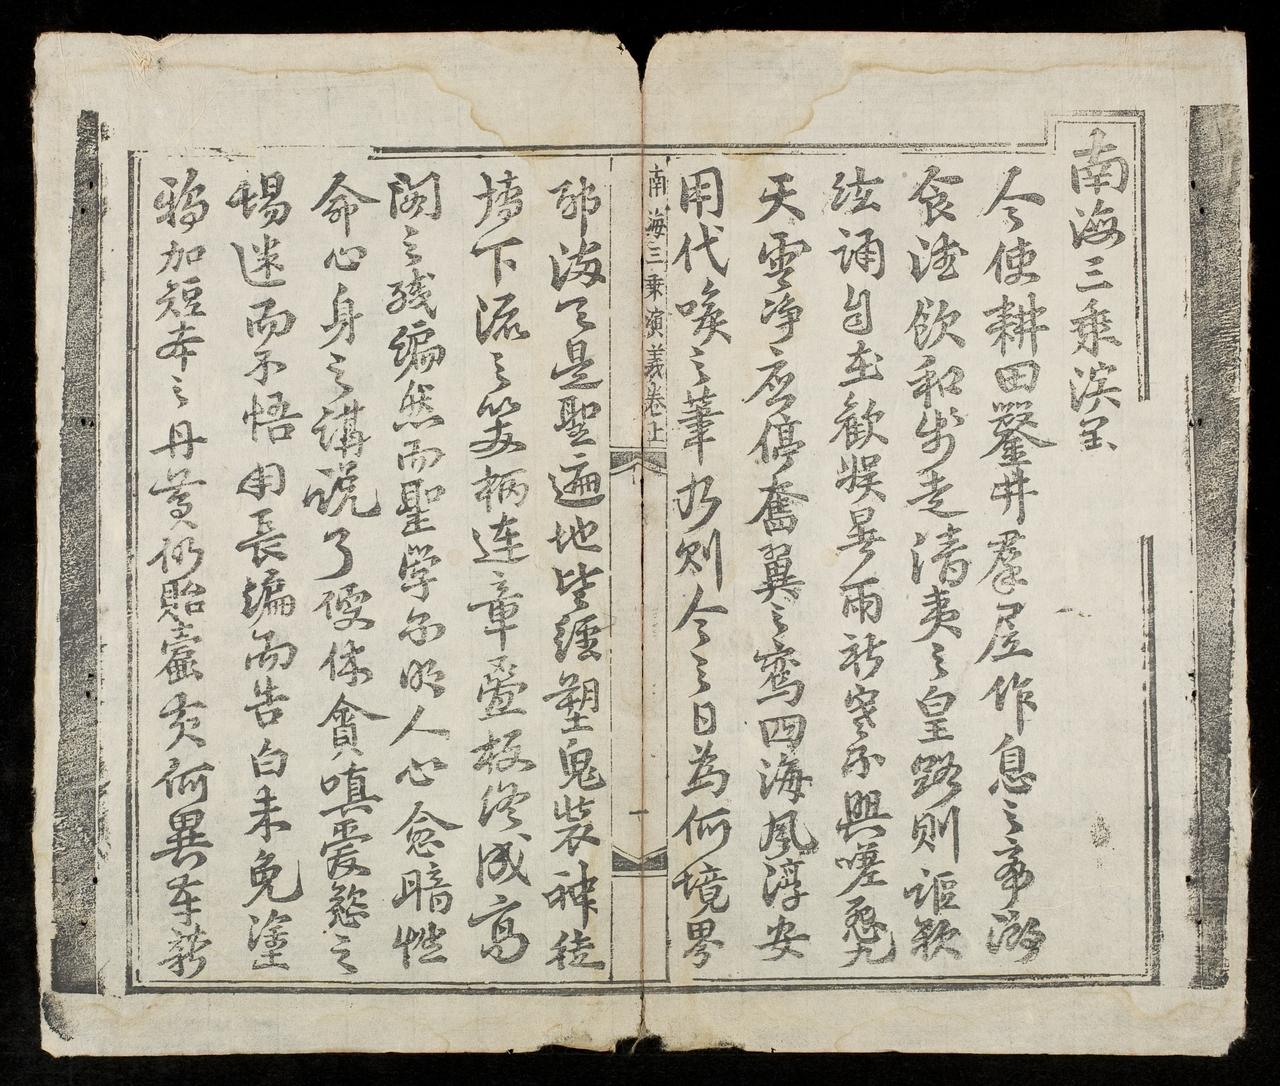 南海三乘演呈
今使耕田鑿井羣居作息之帝
食德飲和步走清夷之皇路則謳歌
弦誦自在歡娛暑雨祈寒不興嗟怨
天雲净應停奮翼之鸞四海風淳安
用代喉之筆乃則今之日為何境界
南海三乘演義卷上
一
邪海天是聖遍地皆經塑鬼裝神徒
墻下流之笑柄連章疊板終成高
閣之殘編然而聖學不明人心愈暗性
命心身之講說了便休貪嗔愛慾之
場迷而不悟用長編而告白未免塗
鴉加短本之丹黃仍貽 何異車薪